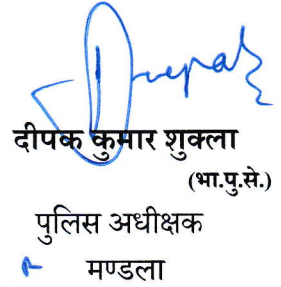 Deepak
दीपक कुमार शुक्ला
(भा.पु.से.)
पुलिस अधीक्षक
मण्डला